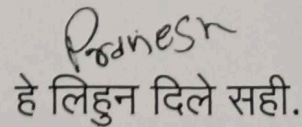 Pranesh
हे लिहुन दिले सही.